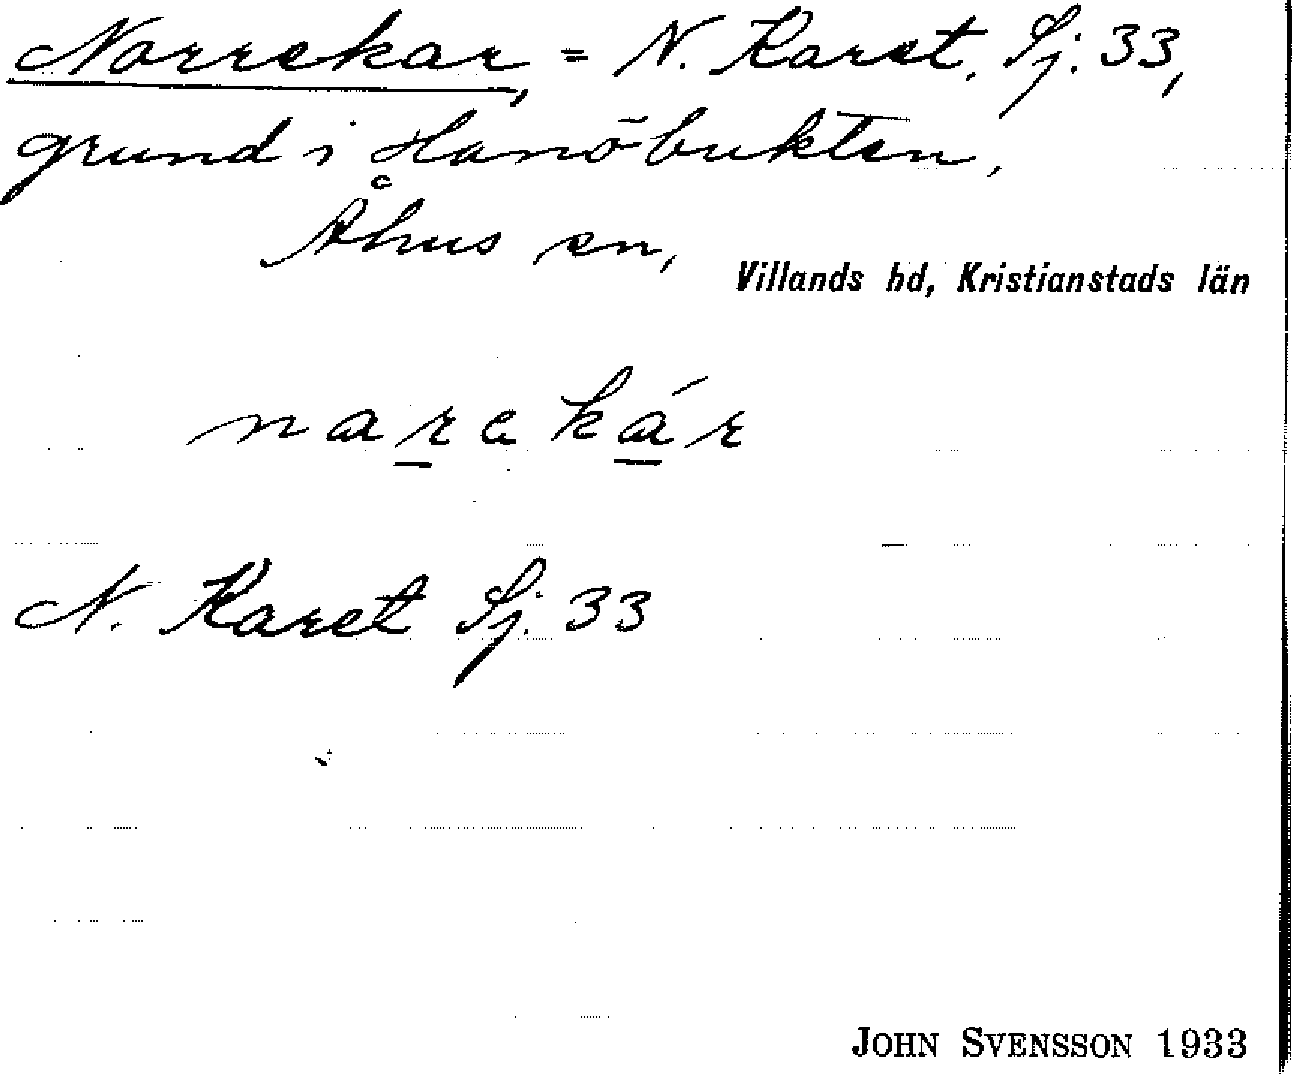 Norrekar, = N. Karet, Sj. 33,
grund i Hanöbukten,
Åhus sn,
Villands hd, Kristianstads län
narekár
N. Karet Sj. 33
JOHN SVENSSON 1933